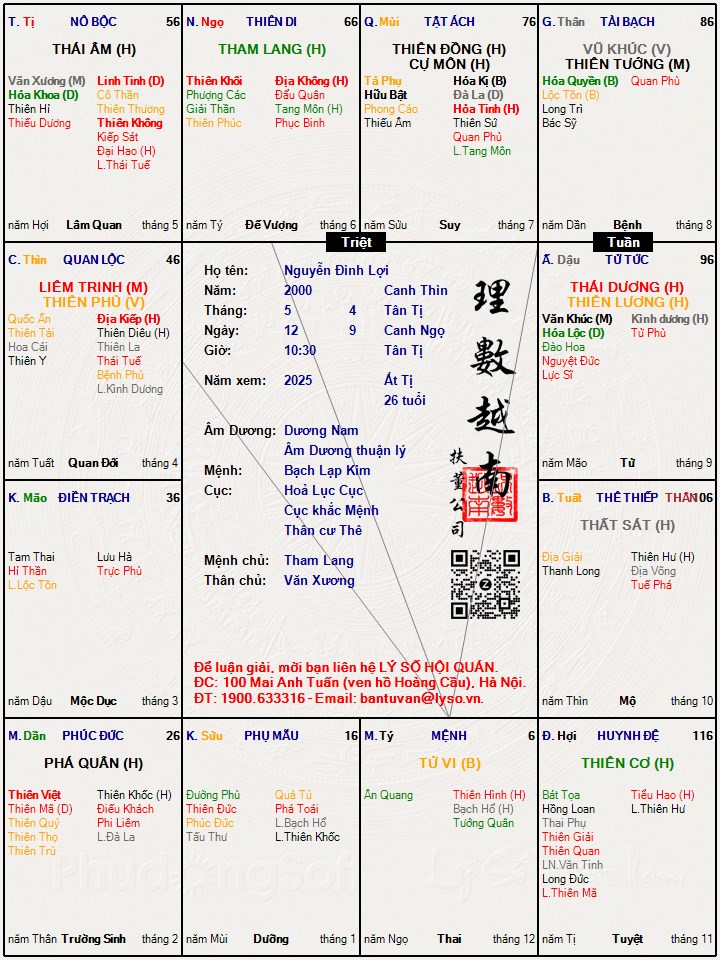 T. Tị NÔ BỘC 56
THÁI ÂM (H)
Văn Xương (M) Linh Tinh (D)
Hóa Khoa (D) Cô Thần
Thiên Hỉ Thiên Thương
Thiếu Dương Thiên Không
Kiếp Sát
Đại Hao (H)
L.Thái Tuế
năm Hợi Lâm Quan tháng 5
N. Ngọ THIÊN DI 66
THAM LANG (H)
Thiên Khôi Địa Không (H)
Phượng Các Đẩu Quân
Giải Thần Tang Môn (H)
Thiên Phúc Phục Binh
năm Tý Đế Vượng tháng 6
Q. Mùi TẬT ÁCH 76
THIÊN ĐỒNG (H)
CỰ MÔN (H)
Tả Phụ Hóa Kị (B)
Hữu Bật Đà La (D)
Phong Cáo Hỏa Tinh (H)
Thiếu Âm Thiên Sứ
Quan Phủ
L.Tang Môn
năm Sửu Suy tháng 7
G. Thân TÀI BẠCH 86
VŨ KHÚC (V)
THIÊN TƯỚNG (M)
Hóa Quyền (B) Quan Phù
Lộc Tồn (B)
Long Trì
Bác Sỹ
năm Dần Bệnh tháng 8
Triệt
Tuần
C. Thìn QUAN LỘC 46
LIÊM TRINH (M)
THIÊN PHỦ (V)
Quốc Ấn Địa Kiếp (H)
Thiên Tài Thiên Diêu (H)
Hoa Cái Thiên La
Thiên Y Thái Tuế
Bệnh Phù
L.Kình Dương
năm Tuất Quan Đới tháng 4
Họ tên: Nguyễn Đình Lợi
Năm: 2000 Canh Thìn
Tháng: 5 4 Tân Tị
Ngày: 12 9 Canh Ngọ
Giờ: 10:30 Tân Tị
Năm xem: 2025 Ất Tị
26 tuổi
Âm Dương: Dương Nam
Âm Dương thuận lý
Mệnh: Bạch Lạp Kim
Cục: Hoả Lục Cục
Cục khắc Mệnh
Thân cư Thê
Mệnh chủ: Tham Lang
Thân chủ: Văn Xương
理數越南
扶董公司
Để luận giải, mời bạn liên hệ LÝ SỐ HỘI QUÁN.
ĐC: 100 Mai Anh Tuấn (ven hồ Hoàng Cầu), Hà Nội.
ĐT: 1900.633316 - Email: bantuvan@lyso.vn.
Ấ. Dậu TỬ TỨC 96
THÁI DƯƠNG (H)
THIÊN LƯƠNG (H)
Văn Khúc (M) Kình dương (H)
Hóa Lộc (D) Tử Phù
Đào Hoa
Nguyệt Đức
Lực Sĩ
năm Mão Tử tháng 9
K. Mão ĐIỀN TRẠCH 36
Tam Thai Lưu Hà
Hỉ Thần Trực Phù
L.Lộc Tồn
năm Dậu Mộc Dục tháng 3
B. Tuất THÊ THIẾP THÂN 106
THẤT SÁT (H)
Địa Giải Thiên Hư (H)
Thanh Long Địa Võng
Tuế Phá
năm Thìn Mộ tháng 10
M. Dần PHÚC ĐỨC 26
PHÁ QUÂN (H)
Thiên Việt Thiên Khốc (H)
Thiên Mã (D) Điếu Khách
Thiên Quý Phi Liêm
Thiên Thọ L.Đà La
Thiên Trù
năm Thân Trường Sinh tháng 2
K. Sửu PHỤ MẪU 16
Đường Phù Quả Tú
Thiên Đức Phá Toái
Phúc Đức L.Bạch Hổ
Tấu Thư L.Thiên Khốc
năm Mùi Dưỡng tháng 1
M. Tý MỆNH 6
TỬ VI (B)
Ân Quang Thiên Hình (H)
Bạch Hổ (H)
Tướng Quân
năm Ngọ Thai tháng 12
Đ. Hợi HUYNH ĐỆ 116
THIÊN CƠ (H)
Bát Tọa Tiểu Hao (H)
Hồng Loan L.Thiên Hư
Thai Phụ
Thiên Giải
Thiên Quan
LN.Văn Tinh
Long Đức
L.Thiên Mã
năm Tị Tuyệt tháng 11